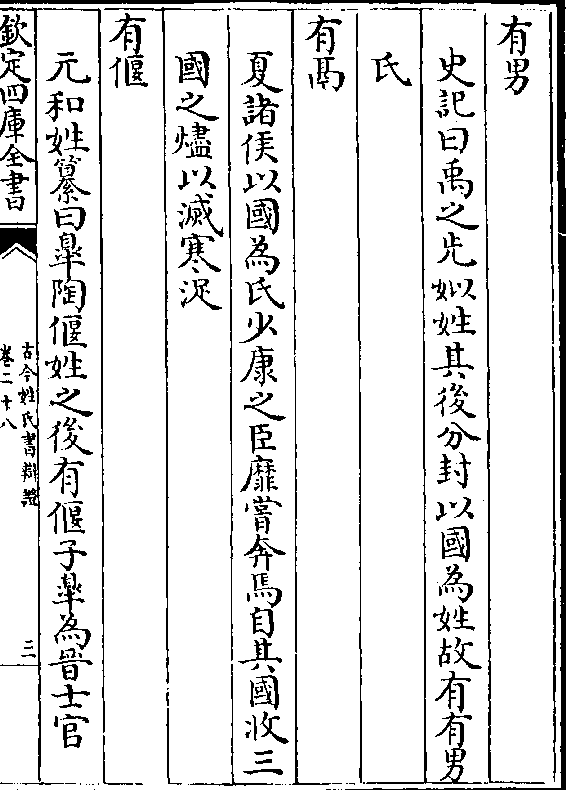 有男
史記曰禹之先姒姓其後分封以國為姓故有有男
氏
有鬲
夏諸侯以國為氏少康之臣靡嘗奔焉自其國收三
國之燼以滅寒浞
有偃
元和姓纂曰皋陶偃姓之後有偃子皋為晉士官
欽定四庫全書
古今姓氏書辯證
卷二十八
三